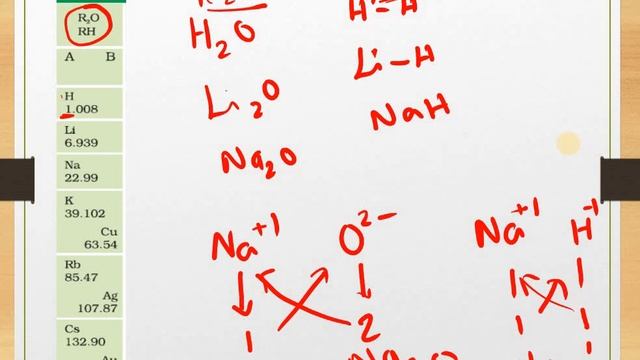 R₂O
RH
A B
H
1.008
Li
6.939
Na
22.99
K
39.102
Cu
63.54
Rb
85.47
Ag
107.87
Cs
132.90
H₂O
Li₂O
Na₂O
H-H
Li-H
NaH
Na⁺¹ O²⁻
1 2
Na⁺¹ H⁻¹
1 1